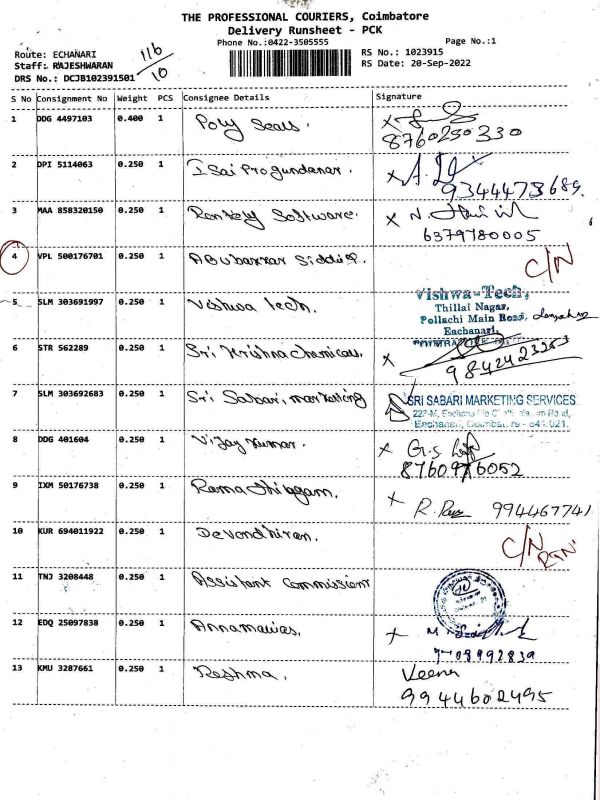 THE PROFESSIONAL COURIERS, Coimbatore
Delivery Runsheet - PCK
Phone No.:0422-3505555
Page No.:1
Route: ECHANARI
Staff: RAJESHWARAN
DRS No.: DCJB102391501
116
10
RS No.: 1023915
RS Date: 20-Sep-2022
S No Consignment No Weight PCS Consignee Details Signature
1 DDG 4497103 0.400 1 Poly Seals.
8760230330
2 DPI 5114063 0.250 1
9344473689.
3 MAA 858320150 0.250 1 Software.
6379780005
4 VPL 500176701 0.250 1 Abubakkar Siddiq. C/N
5 SLM 303691997 0.250 1 Vishwa tech.
Vishwa-Tech,
Thillai Nagar,
Pollachi Main Road,
Eachanari,
6 STR 562289 0.250 1 Sri Krishna Chemicals
9842423253
7 SLM 303692683 0.250 1 Sri Sabari, marketing
SRI SABARI MARKETING SERVICES
8 DDG 401604 0.250 1 Vijay kumar.
8760976052
9 IXM 50176738 0.250 1 R. 994467741
10 KUR 694011922 0.250 1 C/N
11 TNJ 3208448 0.250 1 Assistant Commissioner
12 EDQ 25097838 0.250 1
7708992839
13 KMU 3287661 0.250 1 Reshma. Veena
9944602495